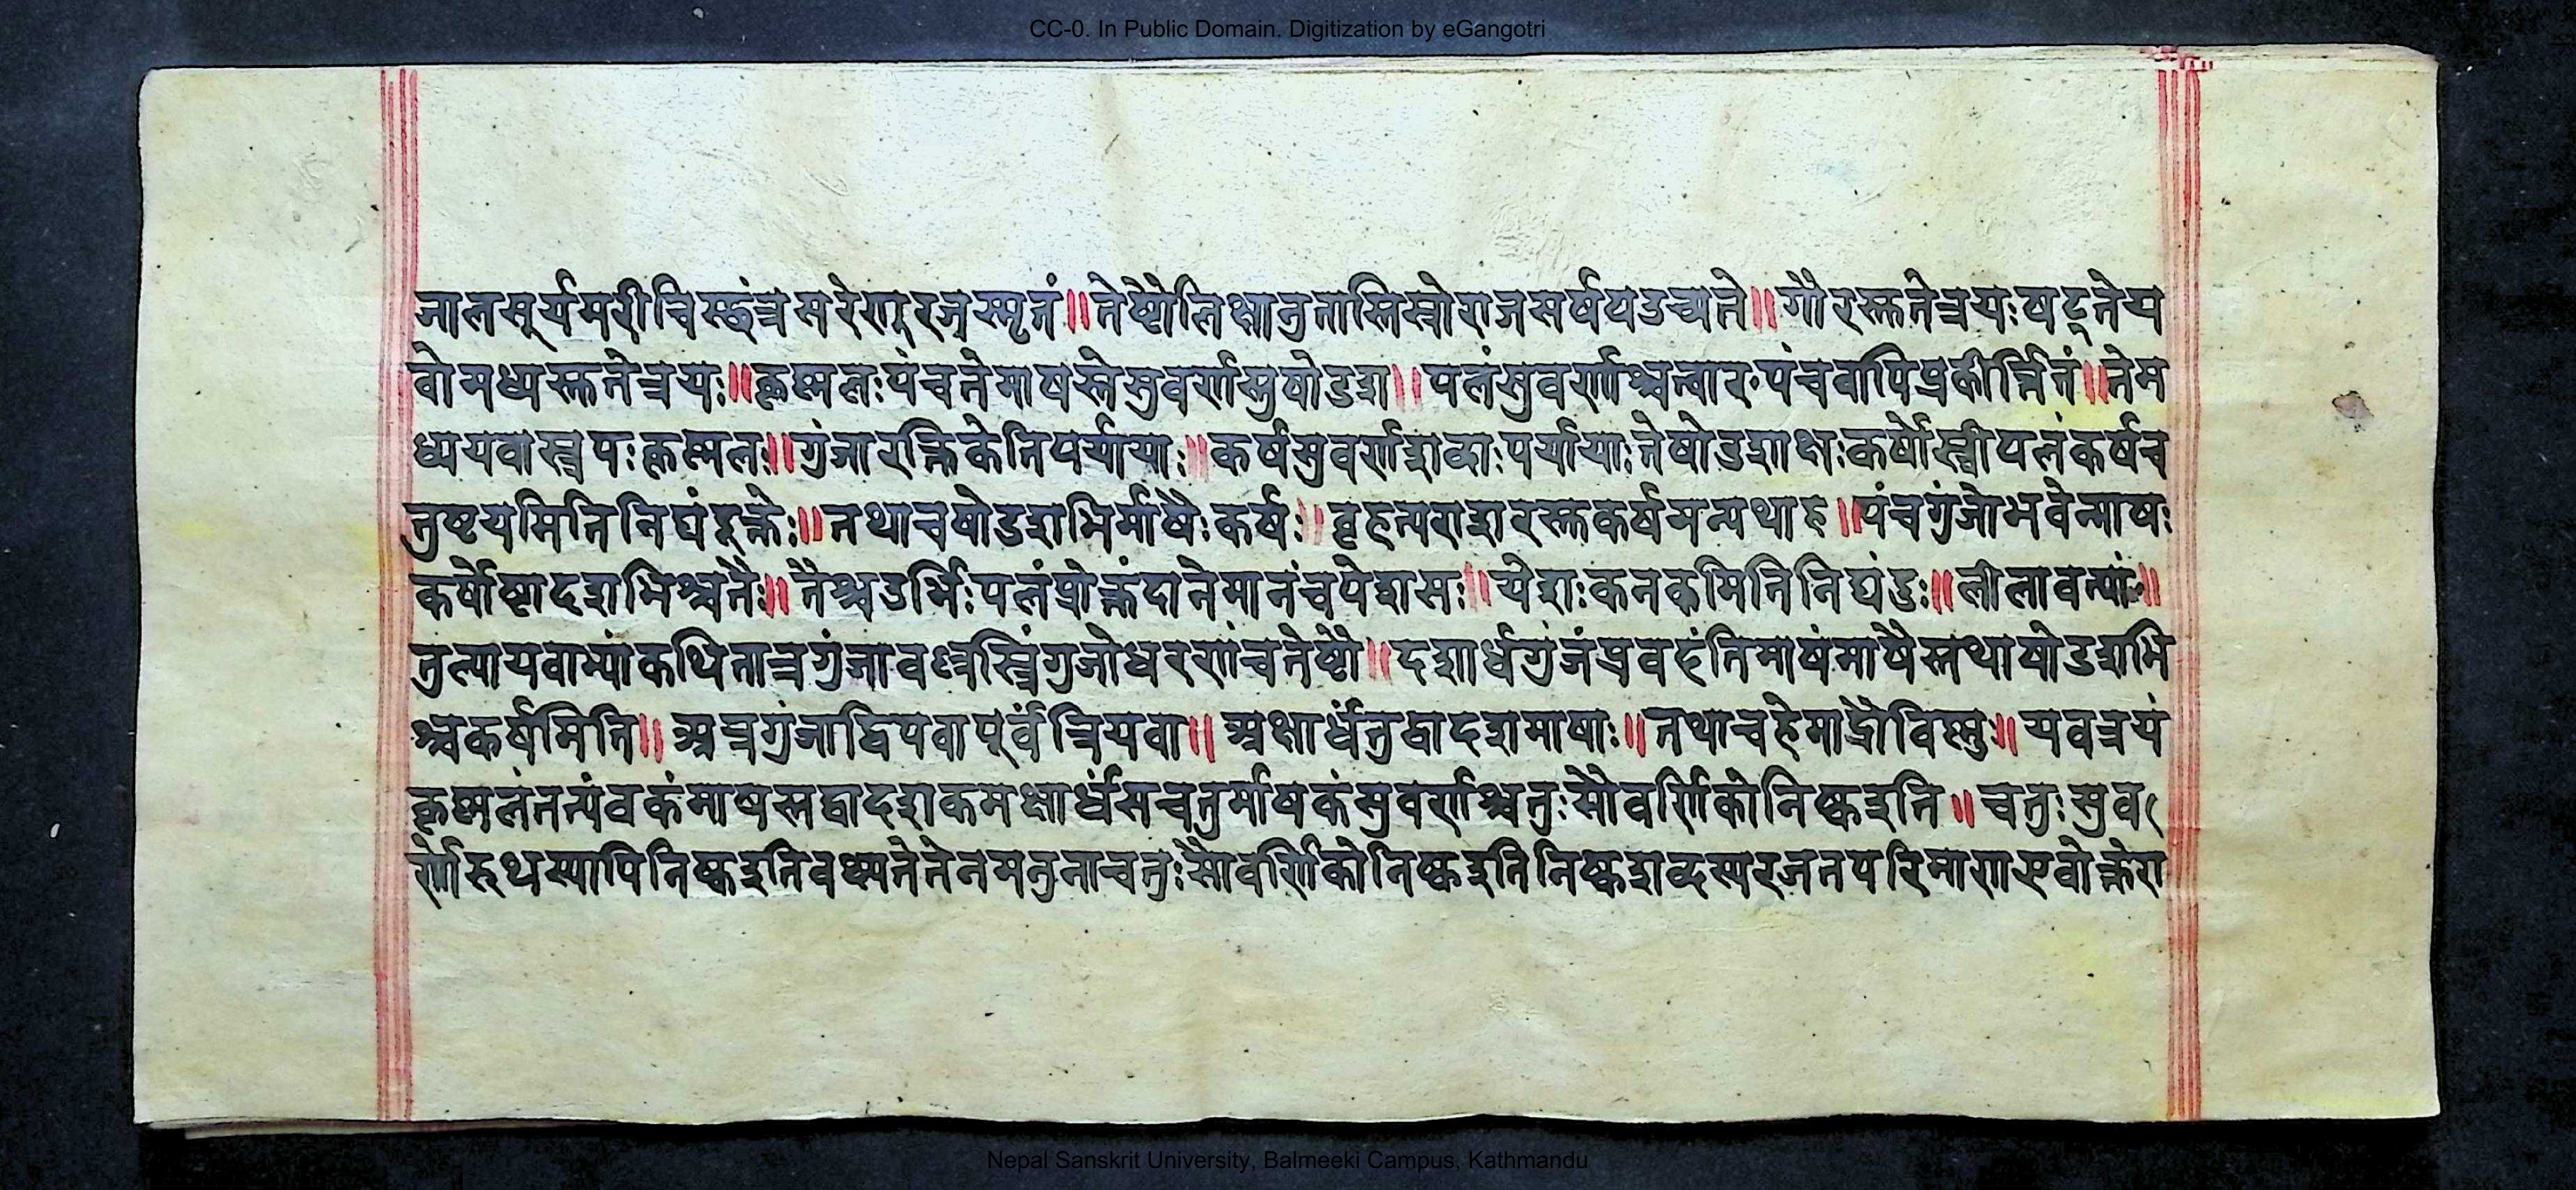 CC-0. In Public Domain. Digitization by eGangotri
जालसूर्यमरीचिस्छंत्रसरेणुरजस्मृतं॥तेष्टौलिक्षातुतास्तिस्त्रोराजसर्षपउच्यते॥गौरस्तुतेत्रयःषट्तेय
वोमध्यस्तुतेत्रयः॥कृष्मलःपंचतेमाषस्तेसुवर्णस्तुषोडश॥पलंसुवर्णाश्चत्वारःपंचवापिप्रकीर्त्तितं॥तेम
ध्ययवास्त्रयःकृष्मलः॥गुंजारक्तिकेतिपर्यायाः॥कर्षसुवर्णशब्दाःपर्यायाःतेषोडशाक्षःकर्षोस्त्रीपलंकर्षच
तुष्टयमितिनिघंटूक्तेः॥तथाचषोडशभिर्माषैःकर्षः॥वृहत्पराशरस्तुकर्षमन्यथाह॥पंचगुंजोभवेन्माषः
कर्षोष्टादशभिश्चतैः॥तैश्चडर्भिःपलंप्रोक्तंदानेमानंचपेशसः॥पेशःकनकमितिनिघंटुः॥लीलावत्यां॥
तुल्यायवाभ्यांकथितात्रगुंजावल्लस्त्रिंगुजोधरणंचतेष्टौ॥दशार्धगुंजंप्रवहंतिमाषंमाषैस्तथाषोडशभि
श्चकर्षमिति॥अत्रगुंजाद्वियवापूर्वंत्रियवा॥अक्षार्धंतुद्वादशमाषाः॥तथाचहेमाद्रौविष्मुः॥यवत्रयं
कृष्मलंतत्पंचकंमाषस्तद्वादशकमक्षार्धंसचतुर्माषकंसुवर्णश्चतुःसौवर्णिकोनिष्कइति॥चतुःसुव
र्णोरुथस्यापिनिष्कइतिवक्ष्यतेतेनमतुनाचतुःसौवर्णिकोनिष्कइतिनिष्कशब्दस्यरजतपरिमाणएवोक्तेरा
Nepal Sanskrit University, Balmeeki Campus, Kathmandu